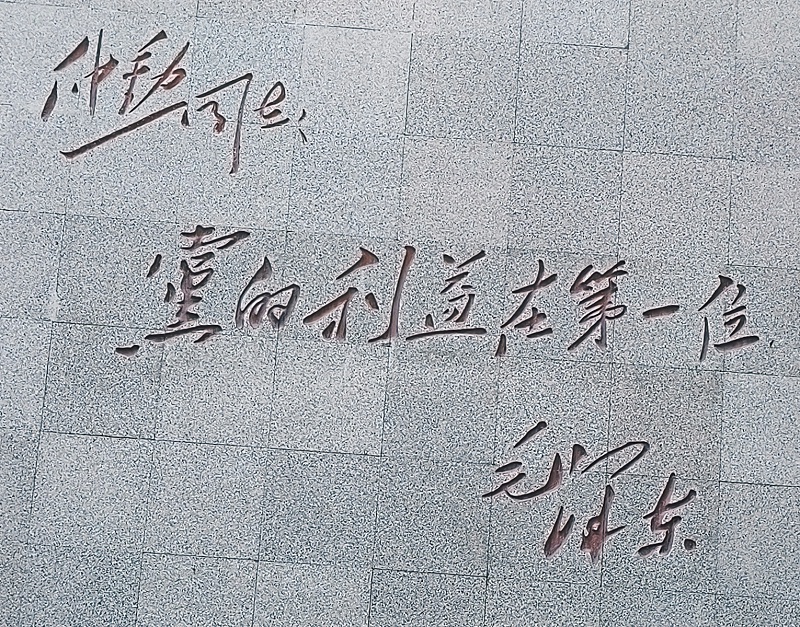 仲勋同志
党的利益在第一位
毛泽东